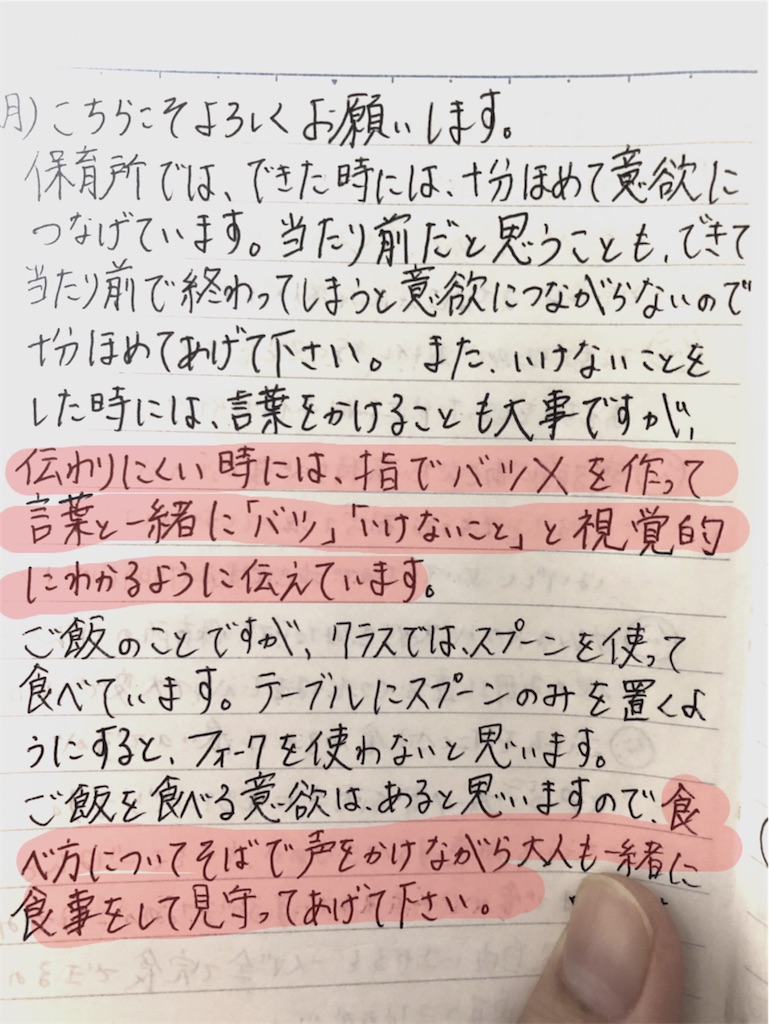 月)こちらこそよろしくお願いします。
保育所では、できた時には、十分ほめて意欲に
つなげています。当たり前だと思うことも、できて
当たり前で終わってしまうと意欲につながらないので
十分ほめてあげて下さい。また、いけないことを
した時には、言葉をかけることも大事ですが、
伝わりにくい時には、指でバツ×を作って
言葉と一緒に「バツ」「いけないこと」と視覚的
にわかるように伝えています。
ご飯のことですが、クラスでは、スプーンを使って
食べています。テーブルにスプーンのみを置くよ
うにすると、フォークを使わないと思います。
ご飯を食べる意欲は、あると思いますので、食
べ方についてそばで声をかけながら大人も一緒に
食事をして見守ってあげて下さい。